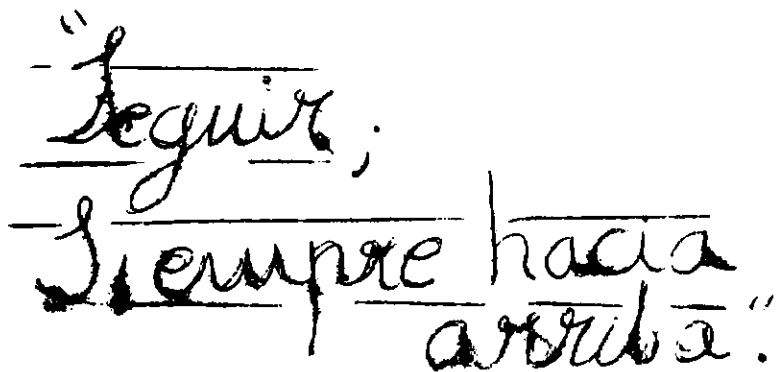 "Seguir;
Siempre hacia
arriba".